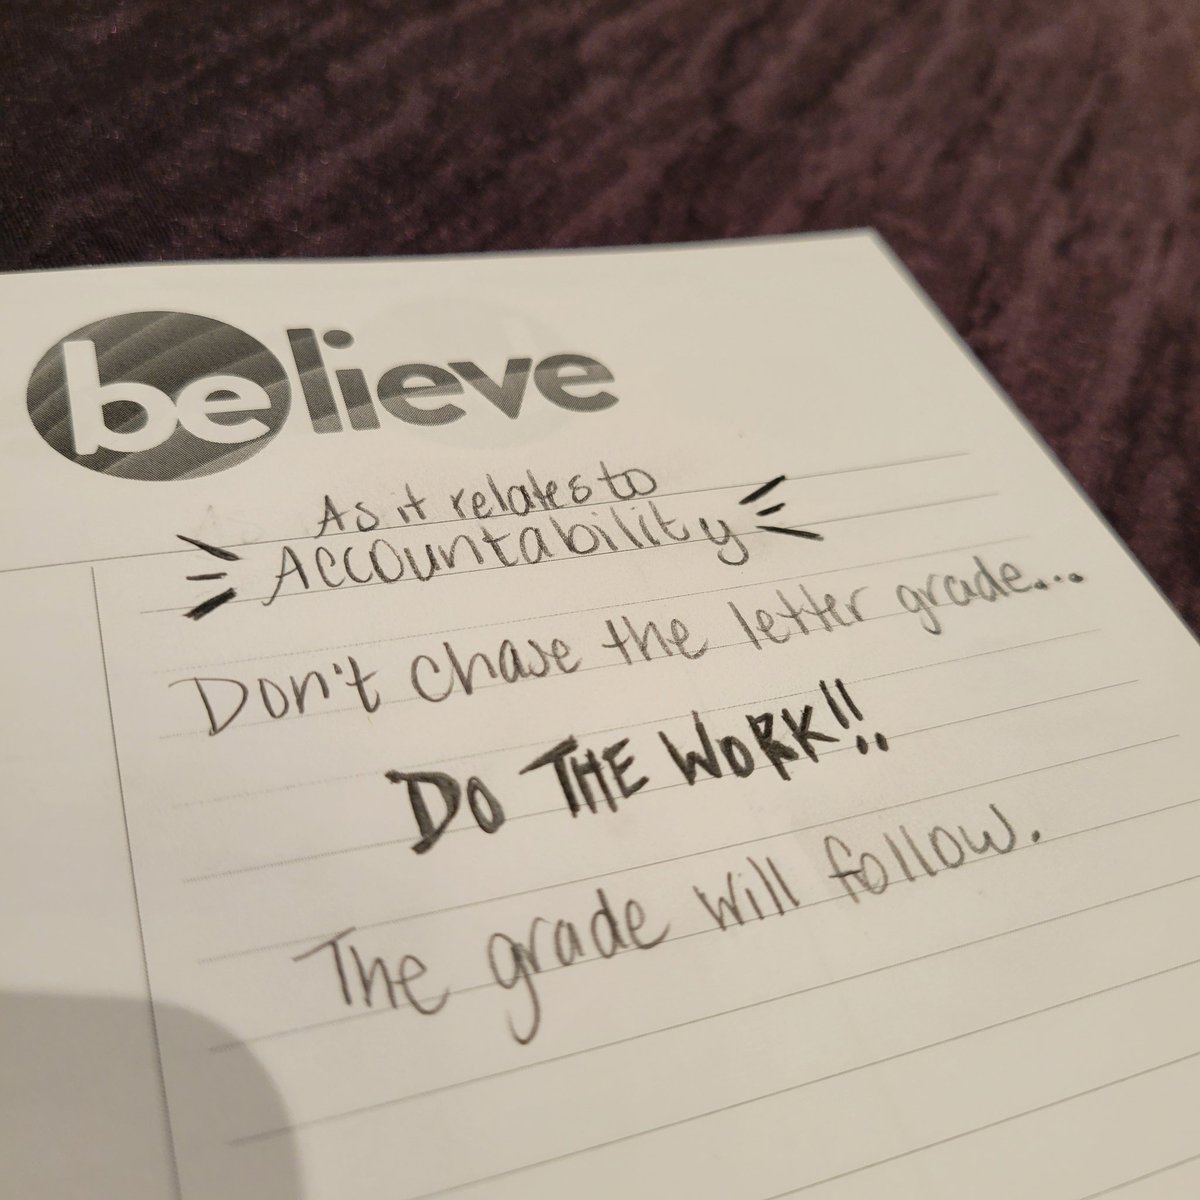 believe
As it relates to
Accountability
Don't chase the letter grade...
DO THE WORK!!
The grade will follow.